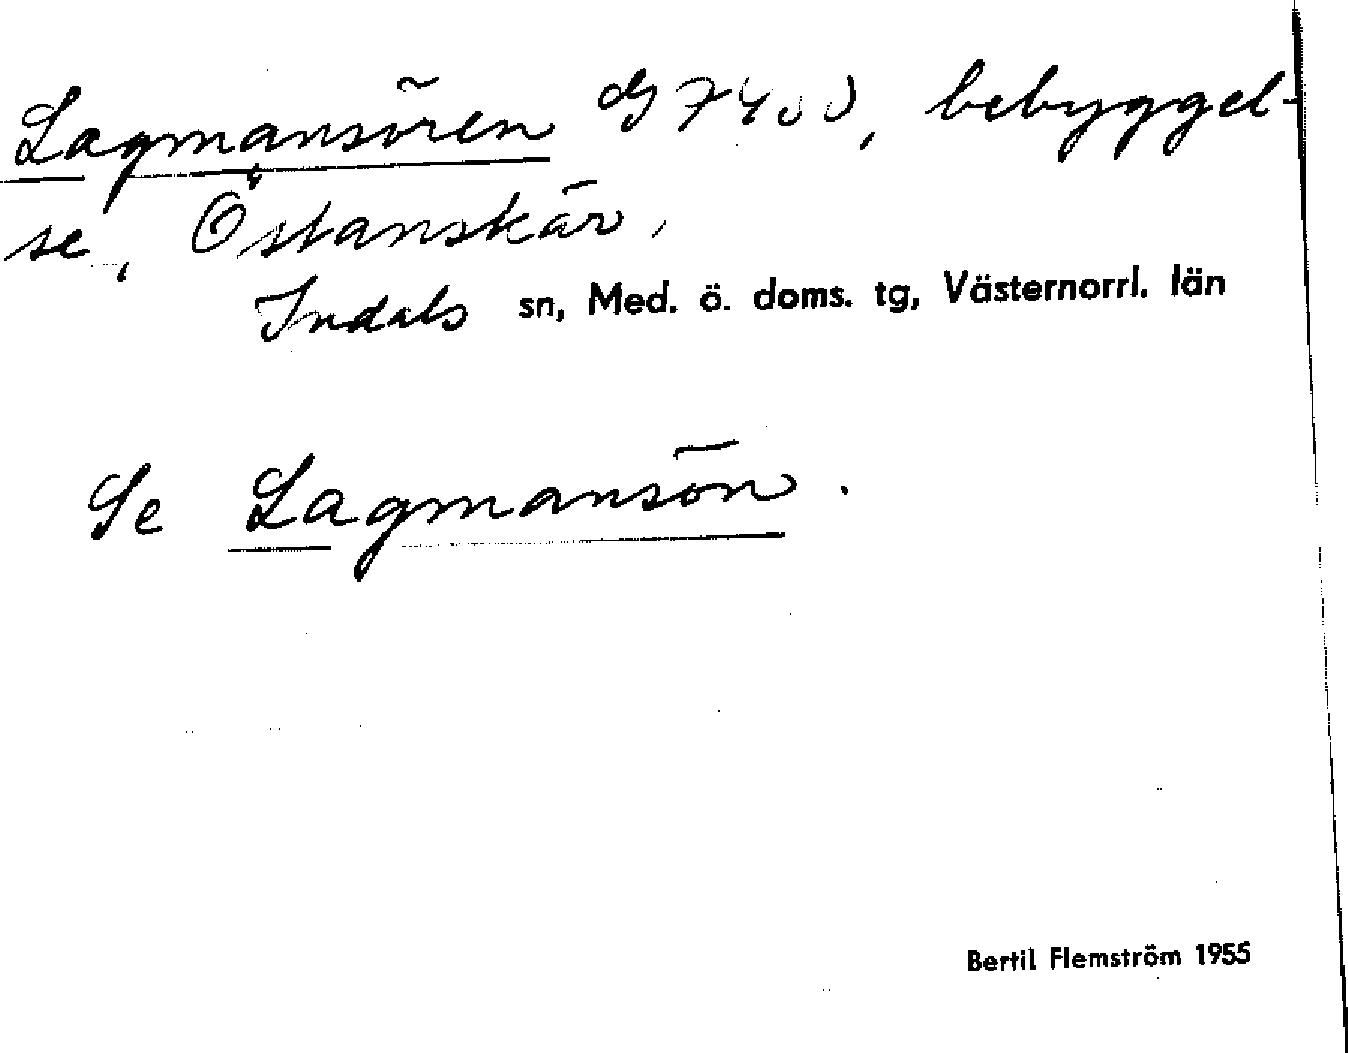 Lagmansören dg 7400, bebyggel-
se, Östanskär,
Indals sn, Med. ö. doms. tg, Västernorrl. län
Se Lagmansön.
Bertil Flemström 1955